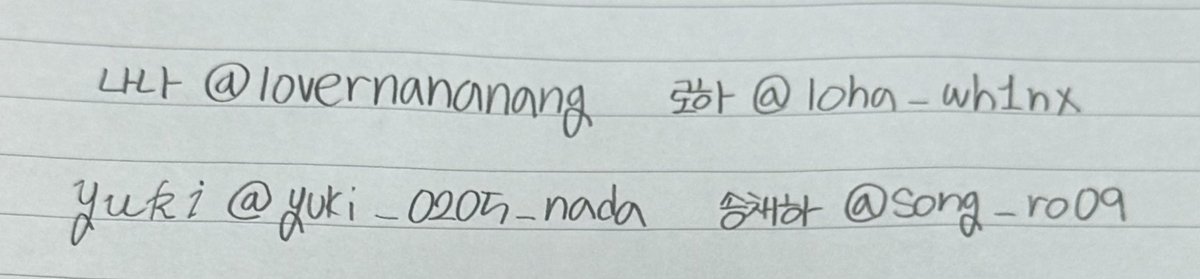 나나 @lovernananang 로하 @loha_wh1nx
yuki @yuki_0205_nada 송재하 @song_ro09